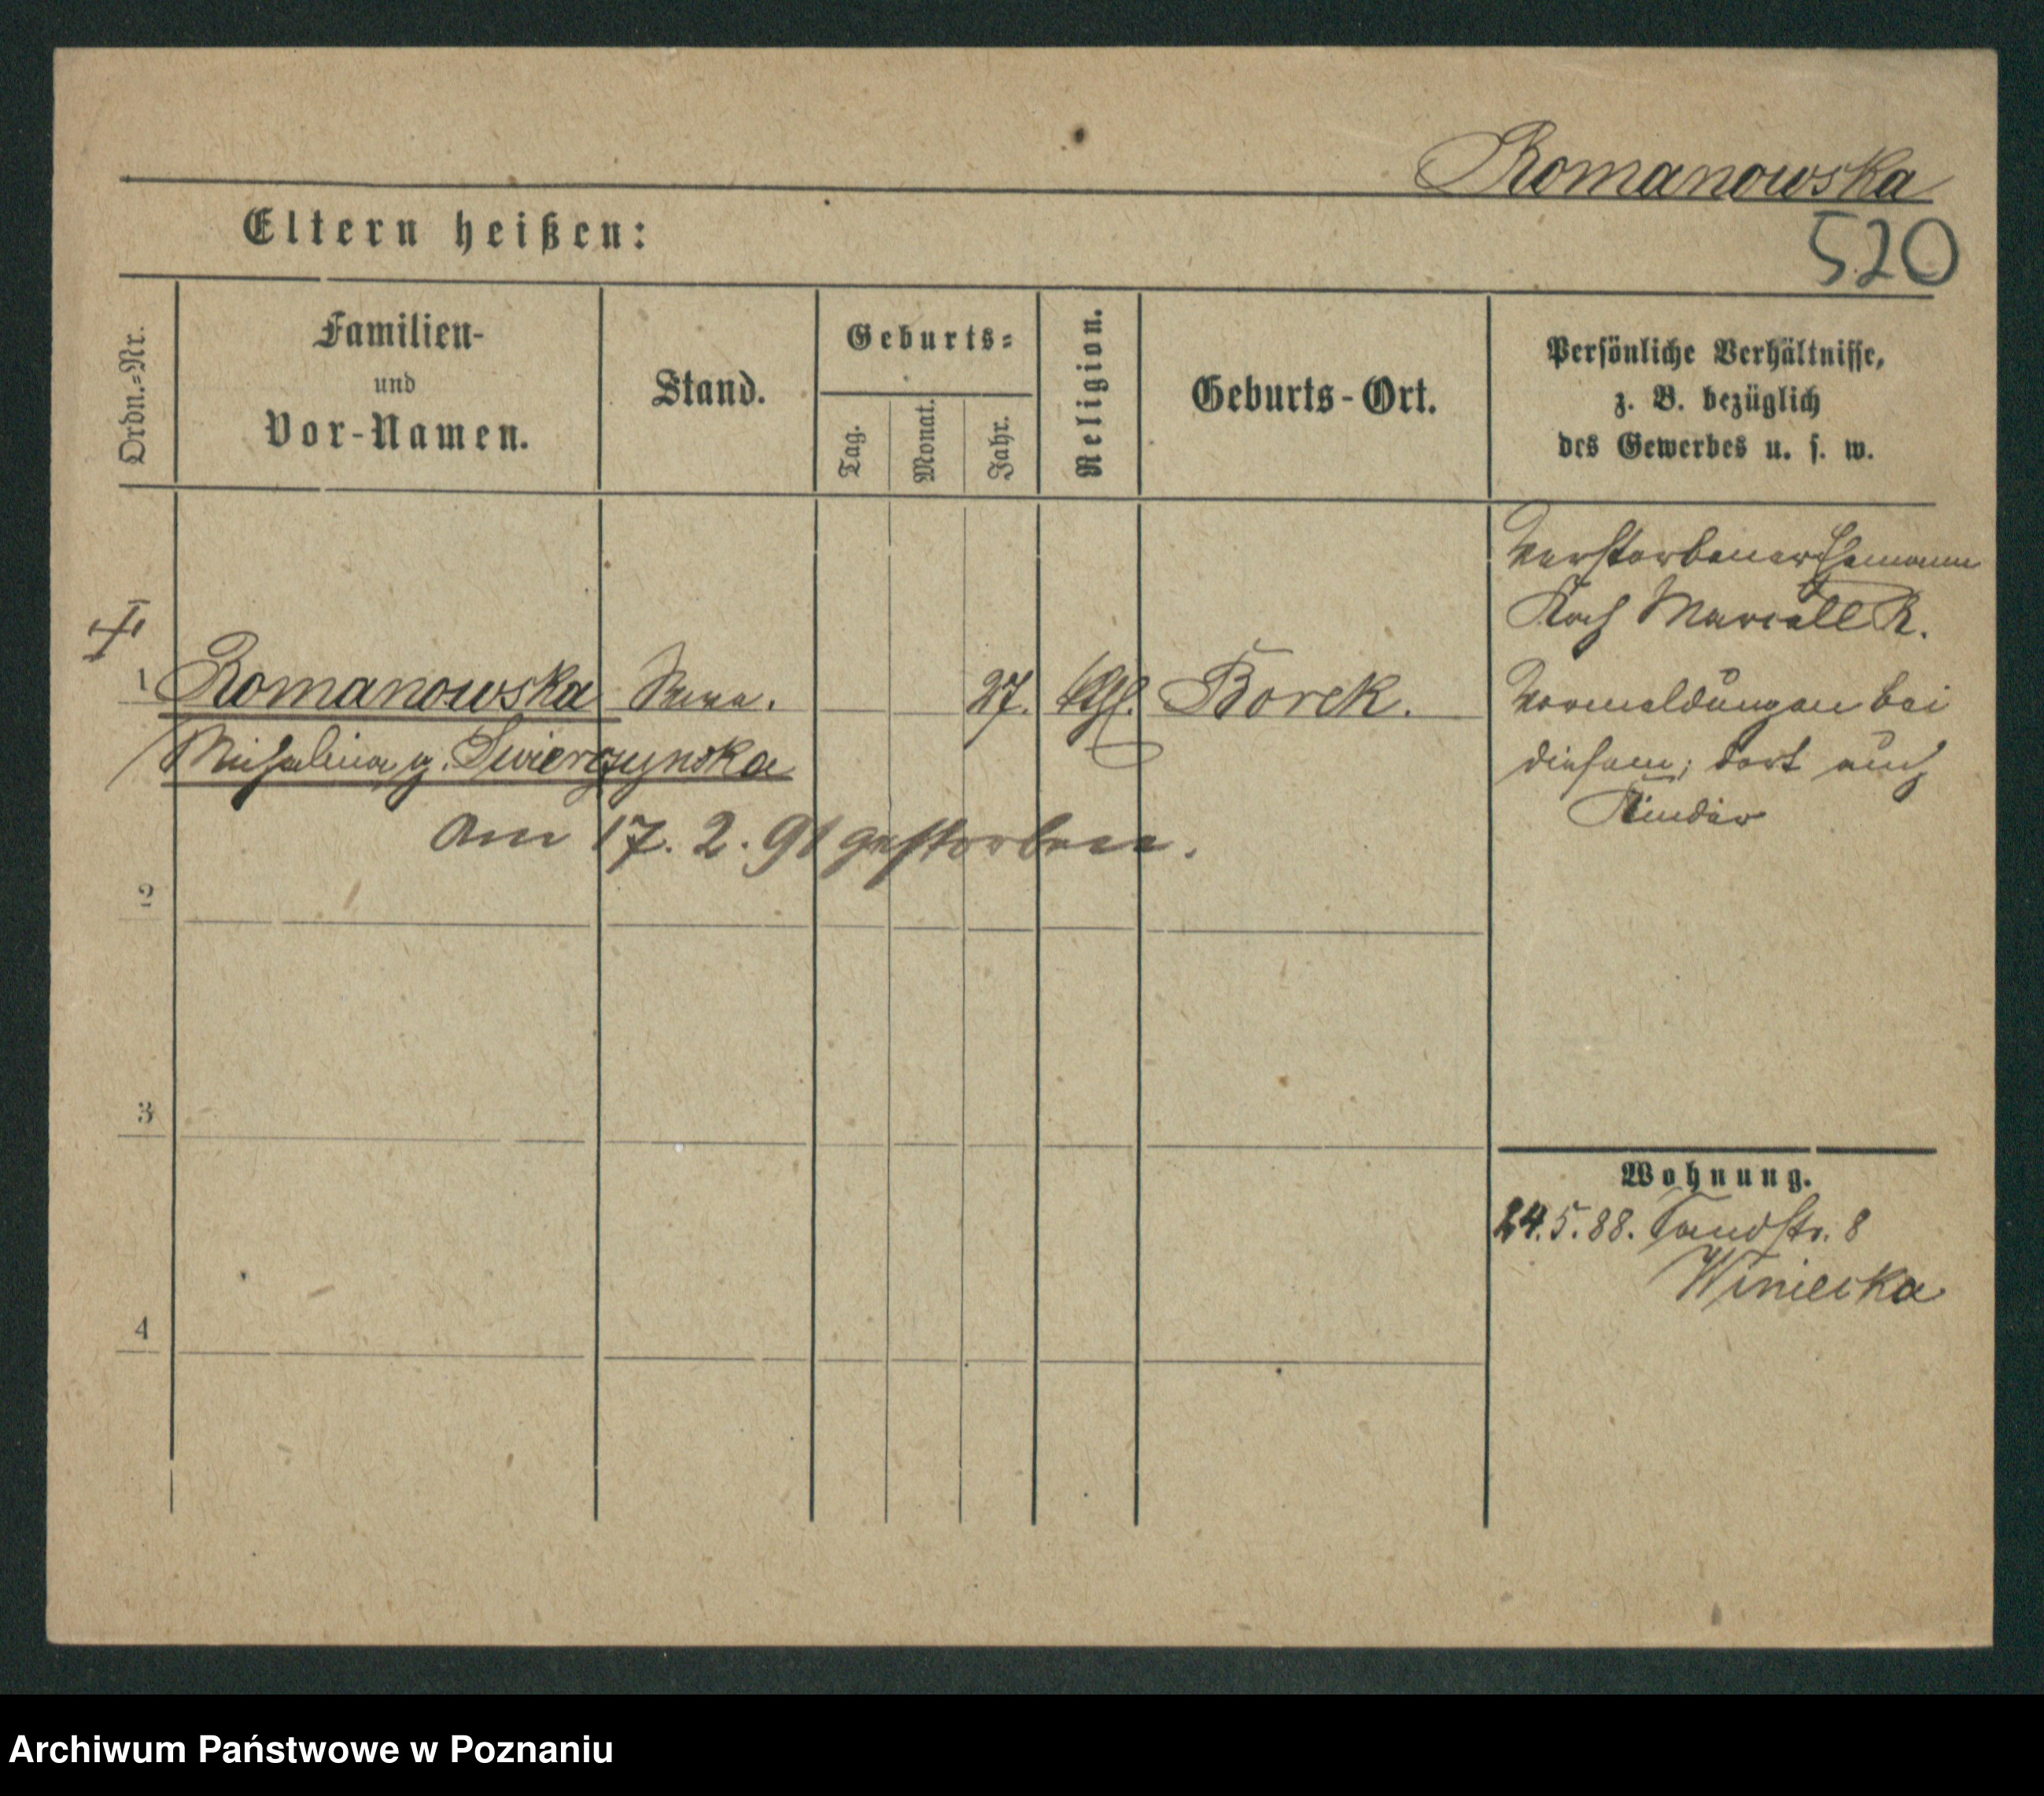 Romanowska
520
Eltern heißen:
Ordn.=Nr.
Familien-
und
Vor-Namen.
Stand.
Geburts=
Tag.
Monat.
Jahr.
Religion.
Geburts-Ort.
Persönliche Verhältnisse,
z. B. bezüglich
des Gewerbes u. s. w.
Verstorbener Ehemann
Koch Marcell R.
1 Romanowska Wwe. 27. kth. Borek.
Michalina g. Swierczynska
Vormeldungen bei
diesem; dort auch
Kinder
Am 17. 2. 91 gestorben.
2
3
4
Wohnung.
24.5.88. Sandstr. 8
Winiecka
Archiwum Państwowe w Poznaniu